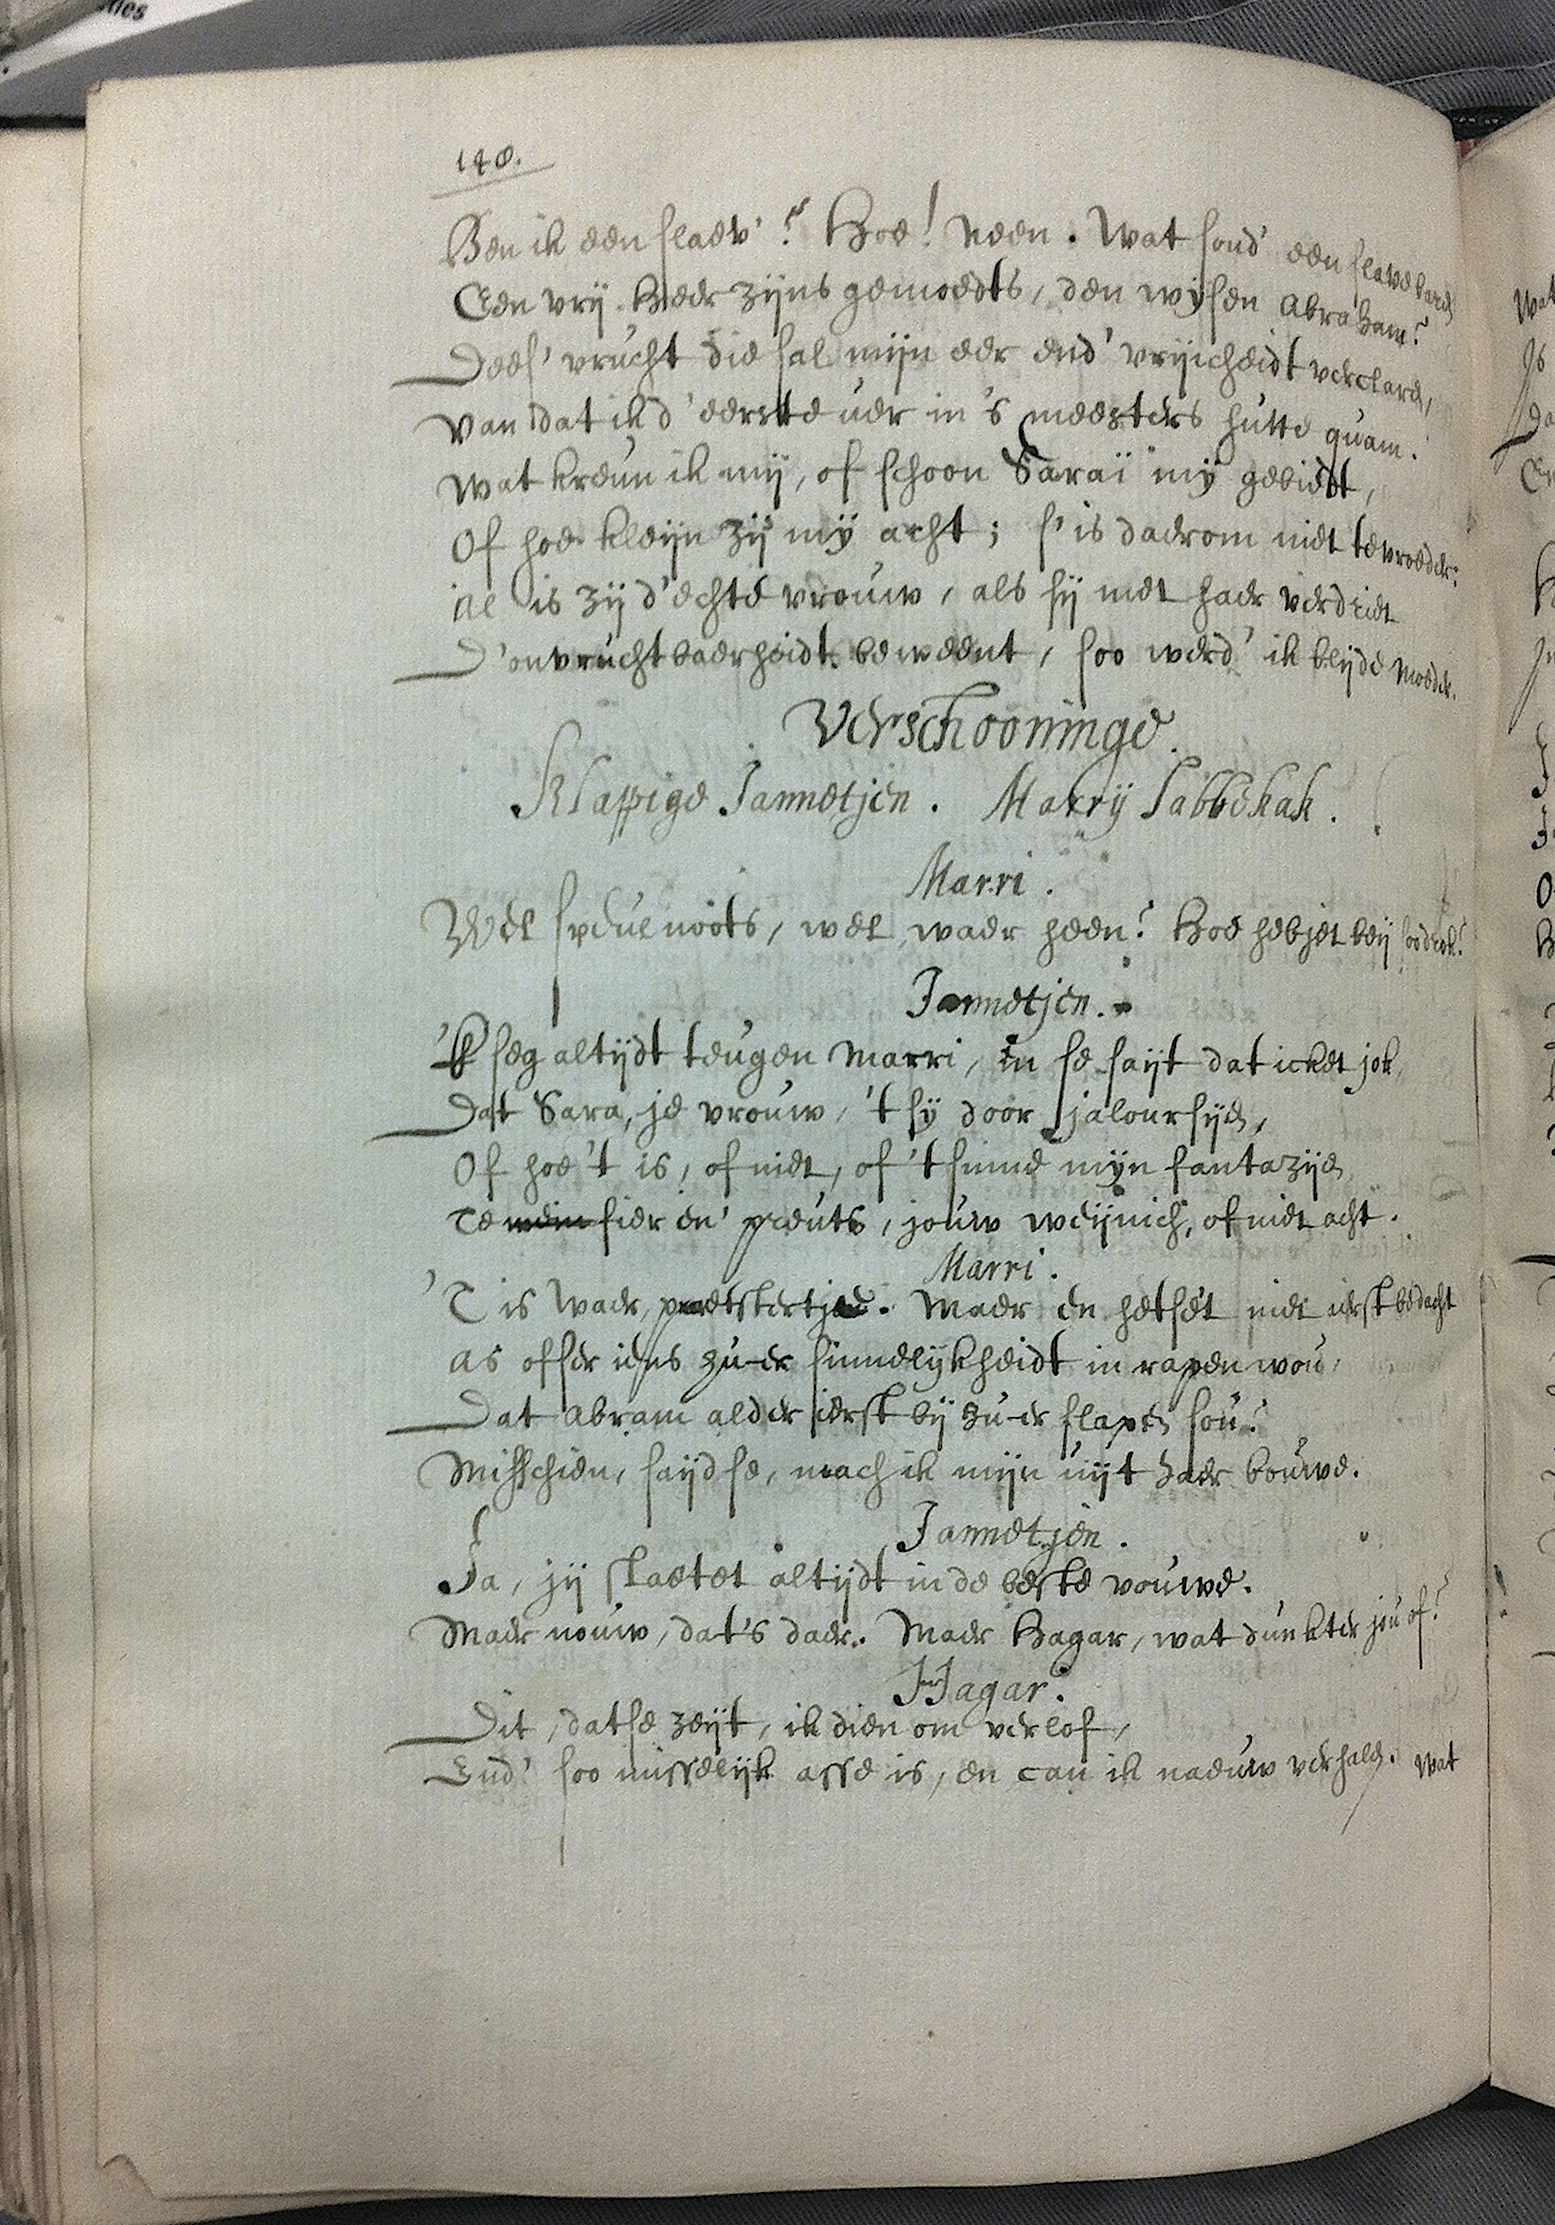 148.
Ben ik een slaev'? Hoe! Neen. Wat sond' een slave baren
Een vrij heer zijns gemoedts, den wijsen Abraham?
Dees' vrucht die sal mijn eer end' vrijicheidt verclaren,
Van dat ik d' eerste uer in 's meesters hutte quam.
Wat kreun ik mij, of schoon Saraï mij gebiedt,
Of hoe kleijn zij mij acht; s' is daerom niet te vroeder:
al is zij d' echte vrouw, als sij met haer verdriet
D' onvruchtbaerheidt beweent, soo werd' ik blijde moeder.
Verschooninge.
Klappige Jannetjen. Marrij Labbekak.
Marri.
Wel speulnoots, wel waer heen? Hoe hebjet beij soo drok?
Jannetjen.
'k seg altijdt teugen Marri, in se saijt dat icket jok,
Dat Sara, je vrouw, 't sij door jaloursijen,
Of hoe 't is, of niet, of 't sinne mijn fantazijen
Te fier en' preuts, jouw weijnich, of niet acht.
Marri.
'T is waer, praetstertjen. Maer en hetset niet ierst bedacht
as offer iens zu-er sinnelijkheidt in rapen wou,
Dat Abram alder ierst bij zu-er slapen sou?
Misschien, saijdse, mach ik mijn uijt haer bouwe.
Jannetjen.
Ja, jij slaetet altijdt in de beste vouwe.
Maer nouw, dat's daer. Maer Hagar, wat dunkter jou of?
Hagar.
Dit, datse zeijt, ik dien om verlof,
End' soo misselijk asse is, en can ik naeuw verhalen. Wat